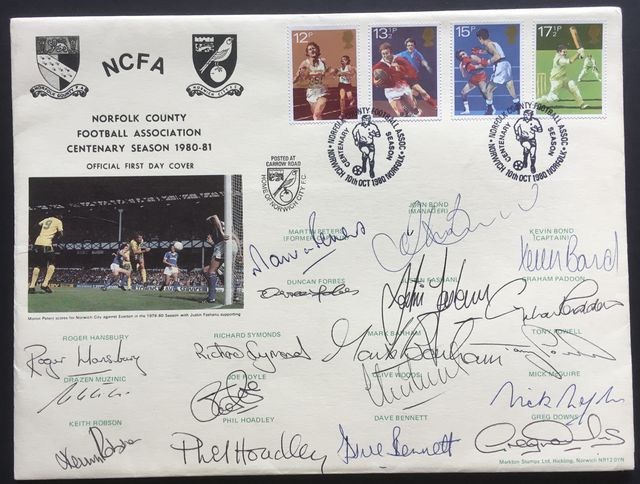 NCFA
NORFOLK COUNTY
FOOTBALL ASSOCIATION
CENTENARY SEASON 1980-81
OFFICIAL FIRST DAY COVER
12P
13½P
15P
17½P
NORFOLK COUNTY FOOTBALL ASSOC
CENTENARY SEASON
NORWICH 10th OCT 1980 NORFOLK
NORFOLK COUNTY FOOTBALL ASSOC
CENTENARY SEASON
NORWICH 10th OCT 1980 NORFOLK
POSTED AT
CARROW ROAD
HOME OF NORWICH CITY F.C.
Martin Peters scores for Norwich City against Everton in the 1979-80 Season with Justin Fashanu supporting
JOHN BOND
(MANAGER)
MARTIN PETERS
KEVIN BOND
(CAPTAIN)
Martin Peters
Kevin Bond
DUNCAN FORBES
JUSTIN FASHANU
GRAHAM PADDON
Duncan Forbes
Justin Fashanu
Graham Paddon
ROGER HANSBURY
RICHARD SYMONDS
MARK BARHAM
TONY POWELL
Roger Hansbury
Richard Symonds
Mark Barham
Tony Powell
DRAZEN MUZINIC
JOE ROYLE
CLIVE WOODS
MICK McGUIRE
KEITH ROBSON
PHIL HOADLEY
DAVE BENNETT
GREG DOWNS
Keith Robson
Phil Hoadley
Dave Bennett
Greg Downs
Markton Stamps Ltd, Hickling, Norwich NR12 0YN